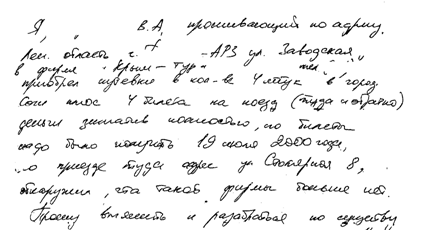 Я, , В.А, проживающий по адресу.
Лен. область г. Г -АРЗ ул. Заводская
в фирме "Крым-тур"
приобрел путевки в кол-ве 4 штук в город
Сочи плюс 4 билета на поезд (туда и обратно)
деньги заплатив полностью, но билеты
надо было получить 19 июля 2000 года,
по приезде туда адрес ул 8,
обнаружил, что такой фирмы больше нет.
Прошу выяснить и разобраться по существу